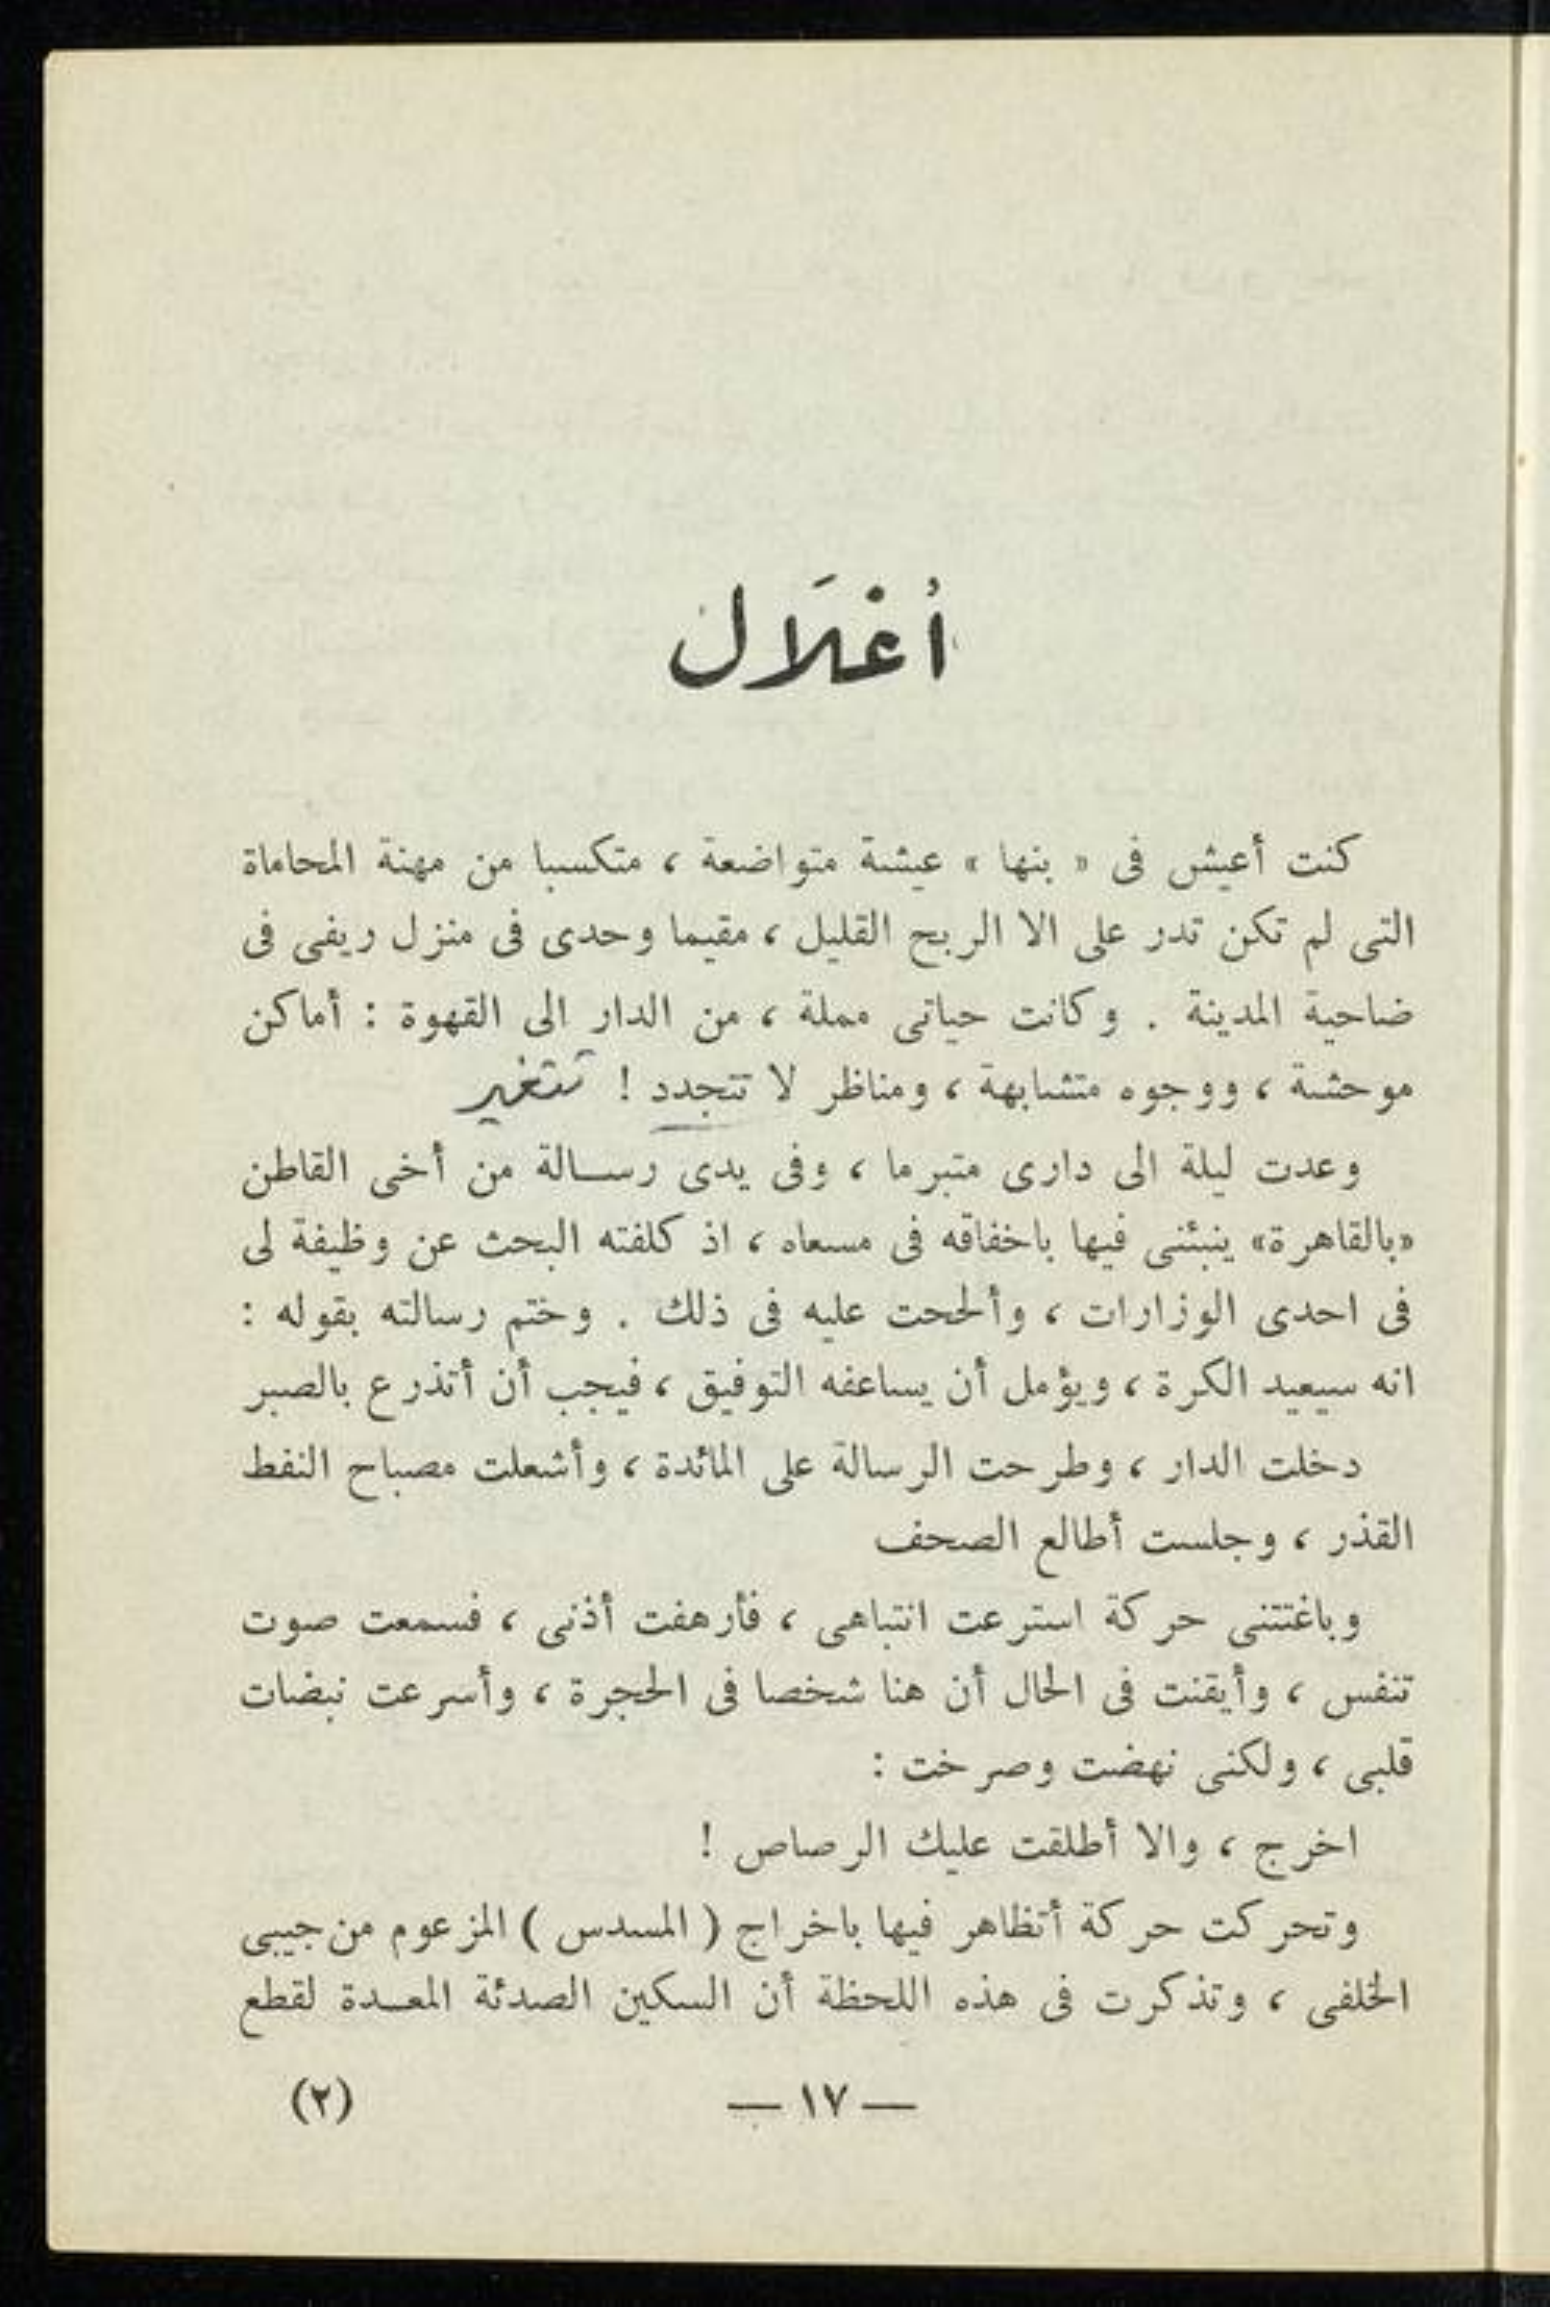 أُغْلَال
كنت أعيش فى « بنها » عيشة متواضعة ، متكسبا من مهنة المحاماة
التى لم تكن تدر على الا الربح القليل ، مقيما وحدى فى منزل ريفى فى
ضاحية المدينة . وكانت حياتى مملة ، من الدار الى القهوة : أماكن
موحشة ، ووجوه متشابهة ، ومناظر لا تتجدد ! تتغير
وعدت ليلة الى دارى متبرما ، وفى يدى رســالة من أخى القاطن
«بالقاهرة» ينبئنى فيها باخفاقه فى مسعاه ، اذ كلفته البحث عن وظيفة لى
فى احدى الوزارات ، وألححت عليه فى ذلك . وختم رسالته بقوله :
انه سيعيد الكرة ، ويؤمل أن يساعفه التوفيق ، فيجب أن أتذرع بالصبر
دخلت الدار ، وطرحت الرسالة على المائدة ، وأشعلت مصباح النفط
القذر ، وجلست أطالع الصحف
وباغتتنى حركة استرعت انتباهى ، فأرهفت أذنى ، فسمعت صوت
تنفس ، وأيقنت فى الحال أن هنا شخصا فى الحجرة ، وأسرعت نبضات
قلبى ، ولكنى نهضت وصرخت :
اخرج ، والا أطلقت عليك الرصاص !
وتحركت حركة أتظاهر فيها باخراج ( المسدس ) المزعوم من جيبى
الخلفى ، وتذكرت فى هذه اللحظة أن السكين الصدئة المعــدة لقطع
— ١٧ —
(٢)